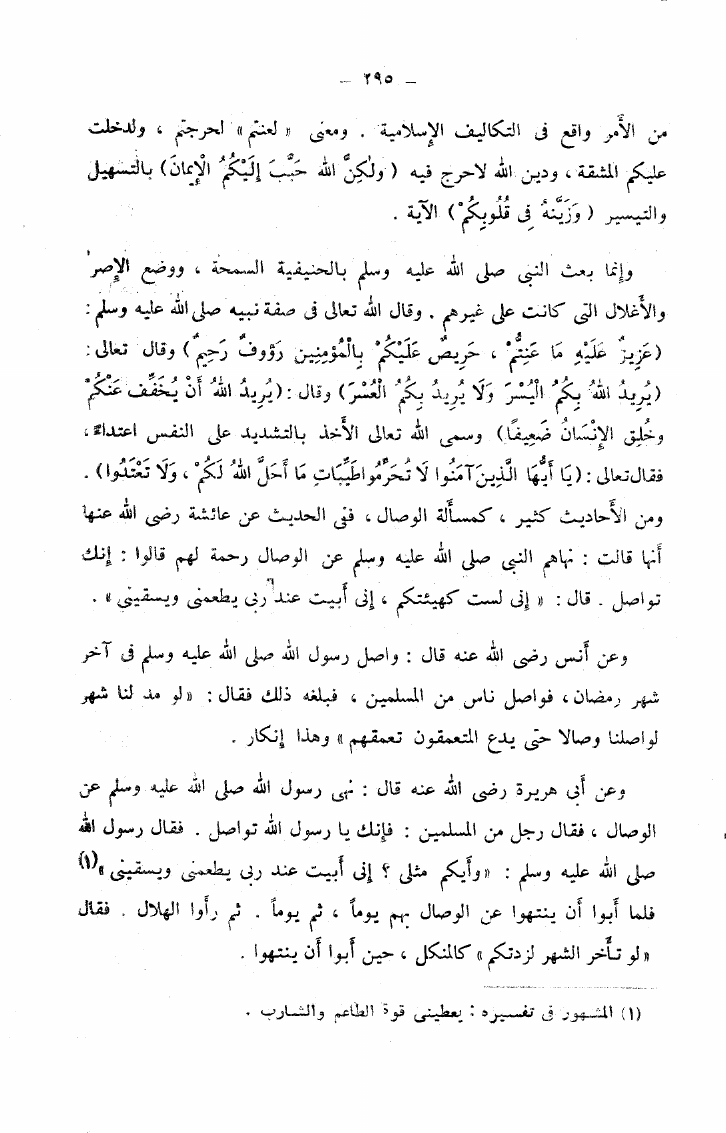 – ٢٩٥ –
من الأمر واقع فى التكاليف الإسلامية . ومعنى « لعنتم » لحرجتم ، ولدخلت
عليكم المشقة ، ودين الله لاحرج فيه ( ولٰكِنَّ اللهَ حَبَّبَ إِلَيْكُمُ الْإِيمَانَ ) بالتسهيل
والتيسير ( وَزَيَّنَهُ فِى قُلُوبِكُمْ ) الآية .
وإنما بعث النبى صلى الله عليه وسلم بالحنيفية السمحة ، ووضع الإصر
والأغلال التى كانت على غيرهم . وقال الله تعالى فى صفة نبيه صلى الله عليه وسلم :
( عَزِيزٌ عَلَيْهِ مَا عَنِتُّمْ ، حَرِيصٌ عَلَيْكُمْ بِالْمُؤْمِنِينَ رَؤُوفٌ رَحِيمٌ ) وقال تعالى :
( يُرِيدُ اللهُ بِكُمُ الْيُسْرَ وَلَا يُرِيدُ بِكُمُ الْعُسْرَ ) وقال : ( يُرِيدُ اللهُ أَنْ يُخَفِّفَ عَنْكُمْ
وَخُلِقَ الإِنْسَانُ ضَعِيفًا ) وسمى الله تعالى الأخذ بالتشديد على النفس اعتداءً ،
فقال تعالى : ( يَا أَيُّهَا الَّذِينَ آمَنُوا لَا تُحَرِّمُوا طَيِّبَاتِ مَا أَحَلَّ اللهُ لَكُمْ ، وَلَا تَعْتَدُوا ) .
ومن الأحاديث كثير ، كمسألة الوصال ، ففى الحديث عن عائشة رضى الله عنها
أنها قالت : نهاهم النبى صلى الله عليه وسلم عن الوصال رحمة لهم قالوا : إنك
تواصل . قال : « إنى لست كهيئتكم ، إنى أبيت عند ربى يطعمنى ويسقينى » .
وعن أنس رضى الله عنه قال : واصل رسول الله صلى الله عليه وسلم فى آخر
شهر رمضان ، فواصل ناس من المسلمين ، فبلغه ذلك فقال : « لو مد لنا شهر
لواصلنا وصالا حتى يدع المتعمقون تعمقهم » وهذا إنكار .
وعن أبى هريرة رضى الله عنه قال : نهى رسول الله صلى الله عليه وسلم عن
الوصال ، فقال رجل من المسلمين : فإنك يا رسول الله تواصل . فقال رسول الله
صلى الله عليه وسلم : « وأيكم مثلى ؟ إنى أبيت عند ربى يطعمنى ويسقينى » (١)
فلما أبوا أن ينتهوا عن الوصال بهم يوماً ، ثم يوماً . ثم رأوا الهلال . فقال
« لو تأخر الشهر لزدتكم » كالمنكل ، حين أبوا أن ينتهوا .
(١) المشهور فى تفسيره : يعطينى قوة الطاعم والشارب .